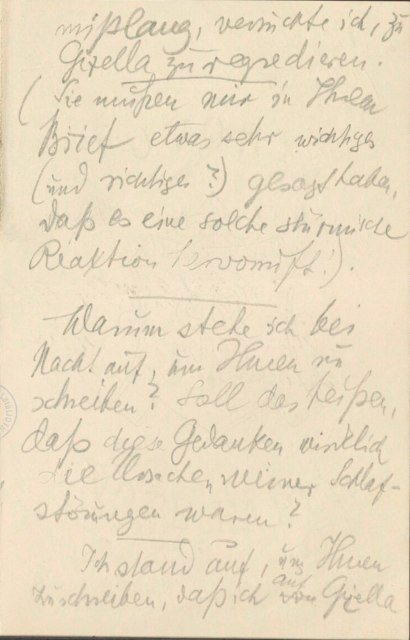 mißlang, versuchte ich, zu
Gizella zu regredieren.
(Sie mußen mir in Ihrem
Brief etwas sehr wichtiges
(und richtiges?) gesagt haben,
daß es eine solche stürmische
Reaktion hervorruft!).
Warum stehe ich bei
Nacht auf, um Ihnen zu
schreiben? Soll das heißen,
daß diese Gedanken wirklich
die Ursachen meiner Schlaf-
störungen waren?
Ich stand auf, um Ihnen
zuschreiben, daß ich auf von Gizella